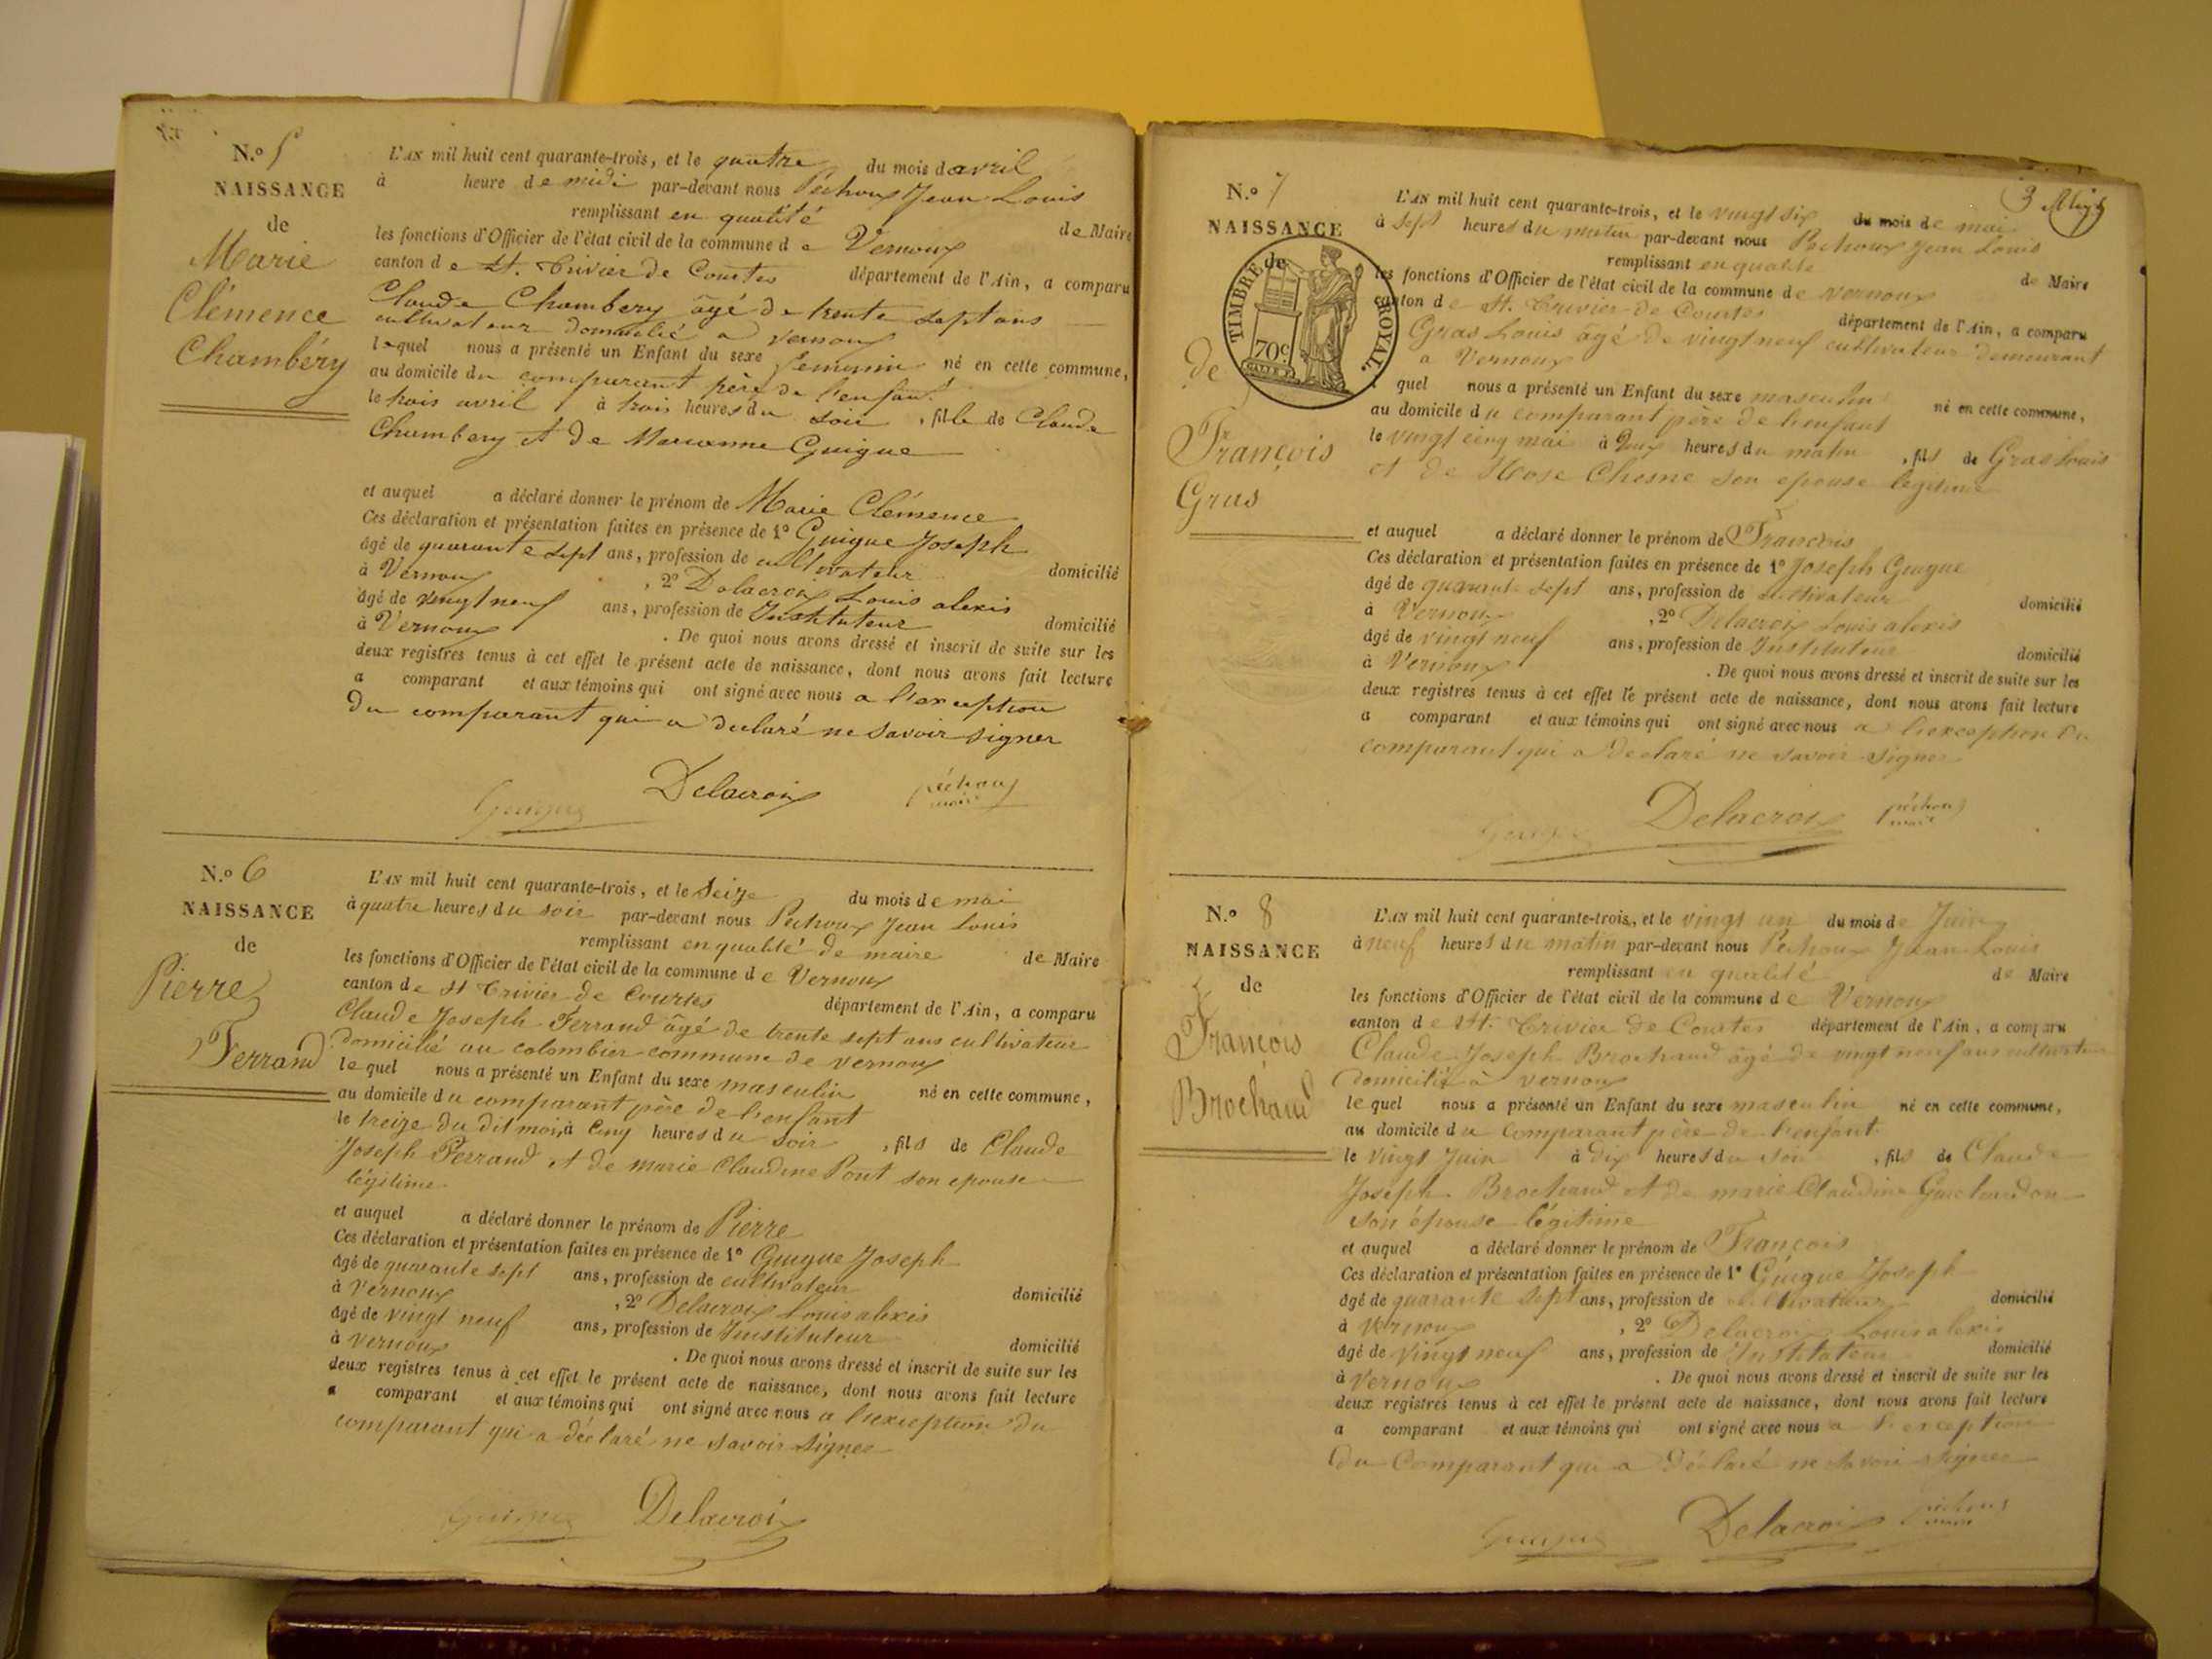 N.º 5
NAISSANCE
de
Marie
Clémence
Chambéry
L'AN mil huit cent quarante-trois, et le quatre du mois d avril
à heure de midi par-devant nous Péchoux Jean Louis
remplissant en qualité de Maire
les fonctions d'Officier de l'état civil de la commune de Vernoux
canton de St. Trivier de Courtes département de l'Ain, a comparu
Claude Chambery âgé de trente sept ans
cultivateur domicilié a vernoux
lequel nous a présenté un Enfant du sexe feminin né en cette commune,
au domicile du comparant père de l'enfant
le trois avril à trois heures du soir, fille de Claude
Chambery et de Marianne Guigue
et auquel a déclaré donner le prénom de Marie Clémence
Ces déclaration et présentation faites en présence de 1º Guigue Joseph
âgé de quarante sept ans, profession de cultivateur domicilié
à Vernoux, 2º Delacroix Louis alexis
âgé de vingt neuf ans, profession de Instituteur domicilié
à Vernoux. De quoi nous avons dressé et inscrit de suite sur les
deux registres tenus à cet effet le présent acte de naissance, dont nous avons fait lecture
a comparant et aux témoins qui ont signé avec nous a l'exception
du comparant qui a declaré ne savoir signer
Guigue Delacroix péchoux
maire
N.º 6
NAISSANCE
de
Pierre
Ferrand
L'AN mil huit cent quarante-trois, et le Seize du mois de mai
à quatre heures du soir par-devant nous Pechoux Jean Louis
remplissant en qualité de maire de Maire
les fonctions d'Officier de l'état civil de la commune de Vernoux
canton de St Trivier de Courtes département de l'Ain, a comparu
Claude Joseph Ferrand âgé de trente sept ans cultivateur
domicilié au colombier commune de vernoux
lequel nous a présenté un Enfant du sexe masculin né en cette commune,
au domicile du comparant père de l'enfant
le treize du dit mois, à cinq heures du soir, fils de Claude
Joseph Ferrand et de marie Claudine Pont son epouse
légitime
et auquel a déclaré donner le prénom de Pierre
Ces déclaration et présentation faites en présence de 1º Guigue Joseph
âgé de quarante sept ans, profession de cultivateur domicilié
à Vernoux, 2º Delacroix Louis alexis
âgé de vingt neuf ans, profession de Instituteur domicilié
à vernoux. De quoi nous avons dressé et inscrit de suite sur les
deux registres tenus à cet effet le présent acte de naissance, dont nous avons fait lecture
a comparant et aux témoins qui ont signé avec nous a l'exception du
comparant qui a déclaré ne savoir signer
Guigue Delacroix
3
N.º 7
NAISSANCE
TIMBRE ROYAL.
70c
de
François
Gras
L'AN mil huit cent quarante-trois, et le vingt six du mois de mai
à sept heures du matin par-devant nous Pechoux Jean Louis
remplissant en qualité de Maire
les fonctions d'Officier de l'état civil de la commune de vernoux
canton de St. Trivier de Courtes département de l'Ain, a comparu
Gras Louis âgé de vingt neuf cultivateur demeurant
a Vernoux
quel nous a présenté un Enfant du sexe masculin né en cette commune,
au domicile du comparant père de l'enfant
le vingt cinq mai à Deux heures du matin, fils de Gras Louis
et de Rose Chesne son epouse légitime
et auquel a déclaré donner le prénom de François
Ces déclaration et présentation faites en présence de 1º Joseph Guigue
âgé de quarante sept ans, profession de cultivateur domicilié
à Vernoux, 2º Delacroix Louis alexis
âgé de vingt neuf ans, profession de Instituteur domicilié
à Vernoux. De quoi nous avons dressé et inscrit de suite sur les
deux registres tenus à cet effet le présent acte de naissance, dont nous avons fait lecture
a comparant et aux témoins qui ont signé avec nous a l'exception du
comparant qui a declaré ne savoir signer
Guigue Delacroix péchoux
maire
N.º 8
NAISSANCE
de
François
Brochand
L'AN mil huit cent quarante-trois, et le vingt un du mois de Juin
à neuf heures du matin par-devant nous Pechoux Jean Louis
remplissant en qualité de Maire
les fonctions d'Officier de l'état civil de la commune de Vernoux
canton de St. Trivier de Courtes département de l'Ain, a comparu
Claude Joseph Brochand âgé de vingt neuf ans cultivateur
domicilié à vernoux
lequel nous a présenté un Enfant du sexe masculin né en cette commune,
au domicile du comparant père de l'enfant
le vingt Juin à dix heures du soir, fils de Claude
Joseph Brochand et de marie Claudine Guichardon
son épouse légitime
et auquel a déclaré donner le prénom de François
Ces déclaration et présentation faites en présence de 1º Guigue Joseph
âgé de quarante sept ans, profession de cultivateur domicilié
à Vernoux, 2º Delacroix Louis alexis
âgé de vingt neuf ans, profession de Instituteur domicilié
à Vernoux. De quoi nous avons dressé et inscrit de suite sur les
deux registres tenus à cet effet le présent acte de naissance, dont nous avons fait lecture
a comparant et aux témoins qui ont signé avec nous a l'exception
du Comparant qui a déclaré ne savoir signer
Guigue Delacroix péchoux
maire